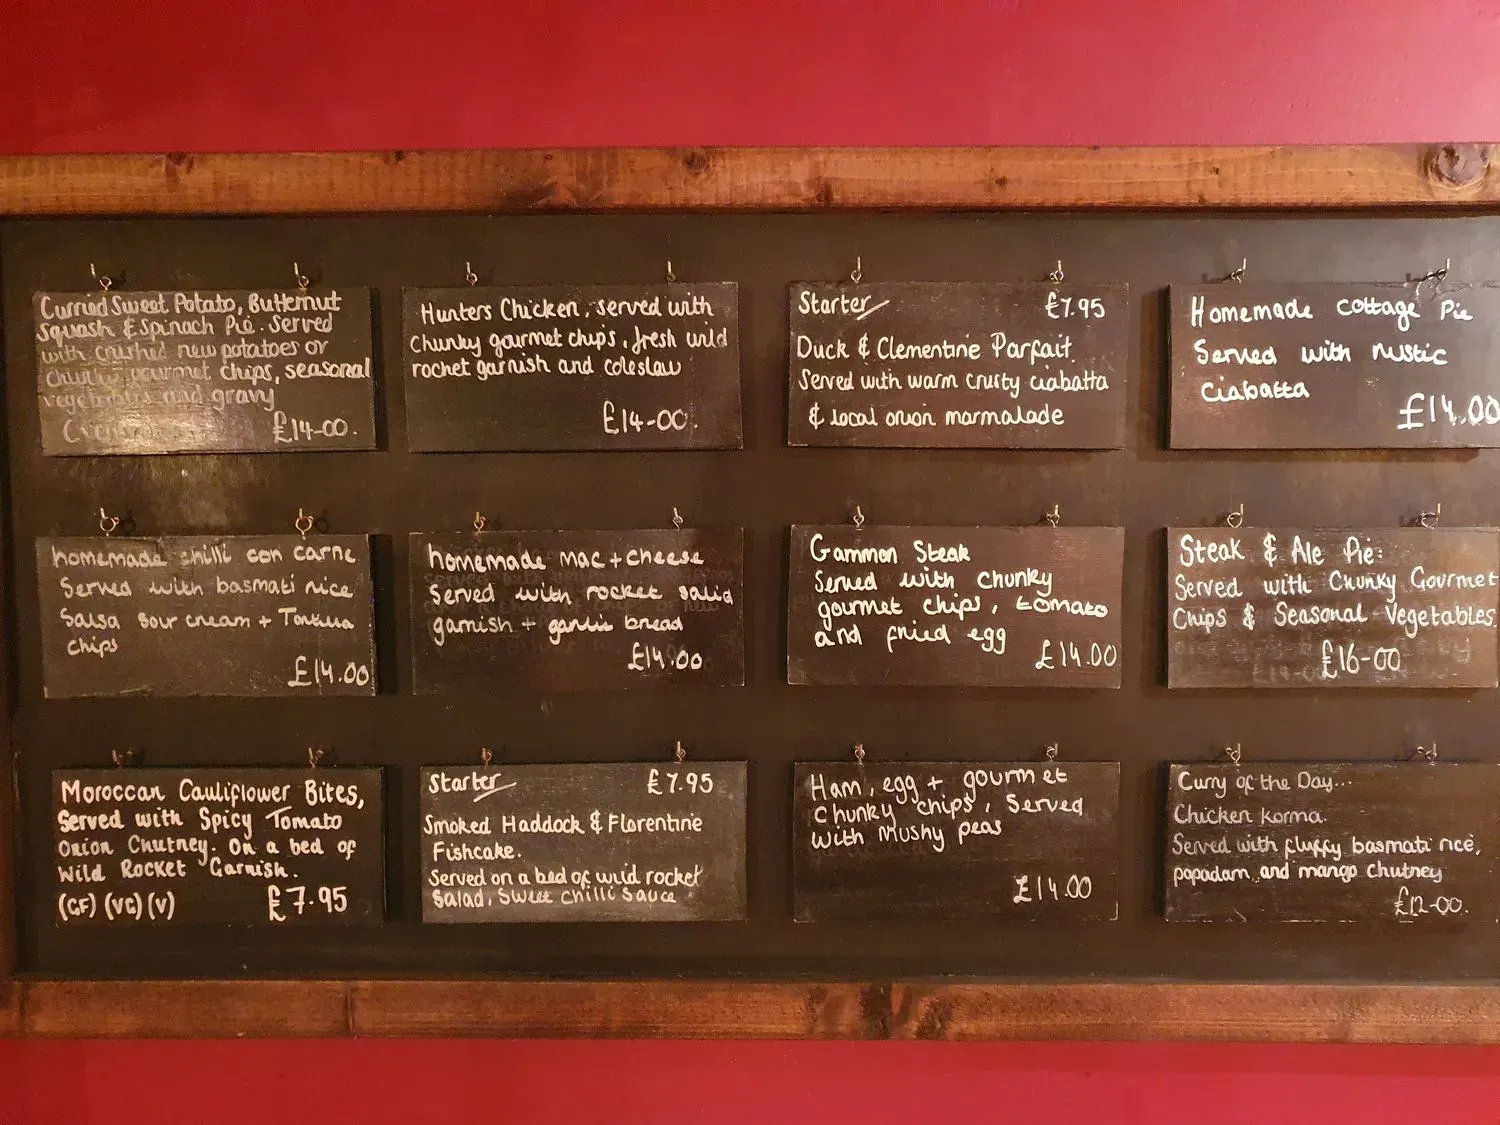 Curried Sweet Potato, Butternut
Squash & Spinach Pie. Served
with crushed new potatoes or
chunky gourmet chips, seasonal
vegetables and gravy
£14-00.
Hunters Chicken, served with
Chunky gourmet chips, fresh wild
rocket garnish and coleslaw
£14-00.
Starter £7.95
Duck & Clementine Parfait.
Served with warm crusty ciabatta
& local onion marmalade
Homemade cottage Pie
Served with rustic
Ciabatta
£14.00
homemade chilli con carne
Served with basmati rice
Salsa sour cream + Tortilla
chips
£14.00
homemade mac + cheese
Served with rocket salad
garnish + garlic bread
£14.00
Gammon Steak
Served with chunky
gourmet chips, tomato
and fried egg
£14.00
Steak & Ale Pie:
Served with Chunky Gourmet
Chips & Seasonal Vegetables.
£16-00
Moroccan Cauliflower Bites,
Served with Spicy Tomato
Onion Chutney. On a bed of
Wild Rocket Garnish.
(GF) (VG) (V) £7.95
Starter £7.95
Smoked Haddock & Florentine
Fishcake.
Served on a bed of wild rocket
Salad, Sweet chilli Sauce
Ham, egg + gourmet
Chunky chips, Served
with Mushy peas
£14.00
Curry of the Day...
Chicken Korma.
Served with fluffy basmati rice,
papadam and mango chutney
£12-00.